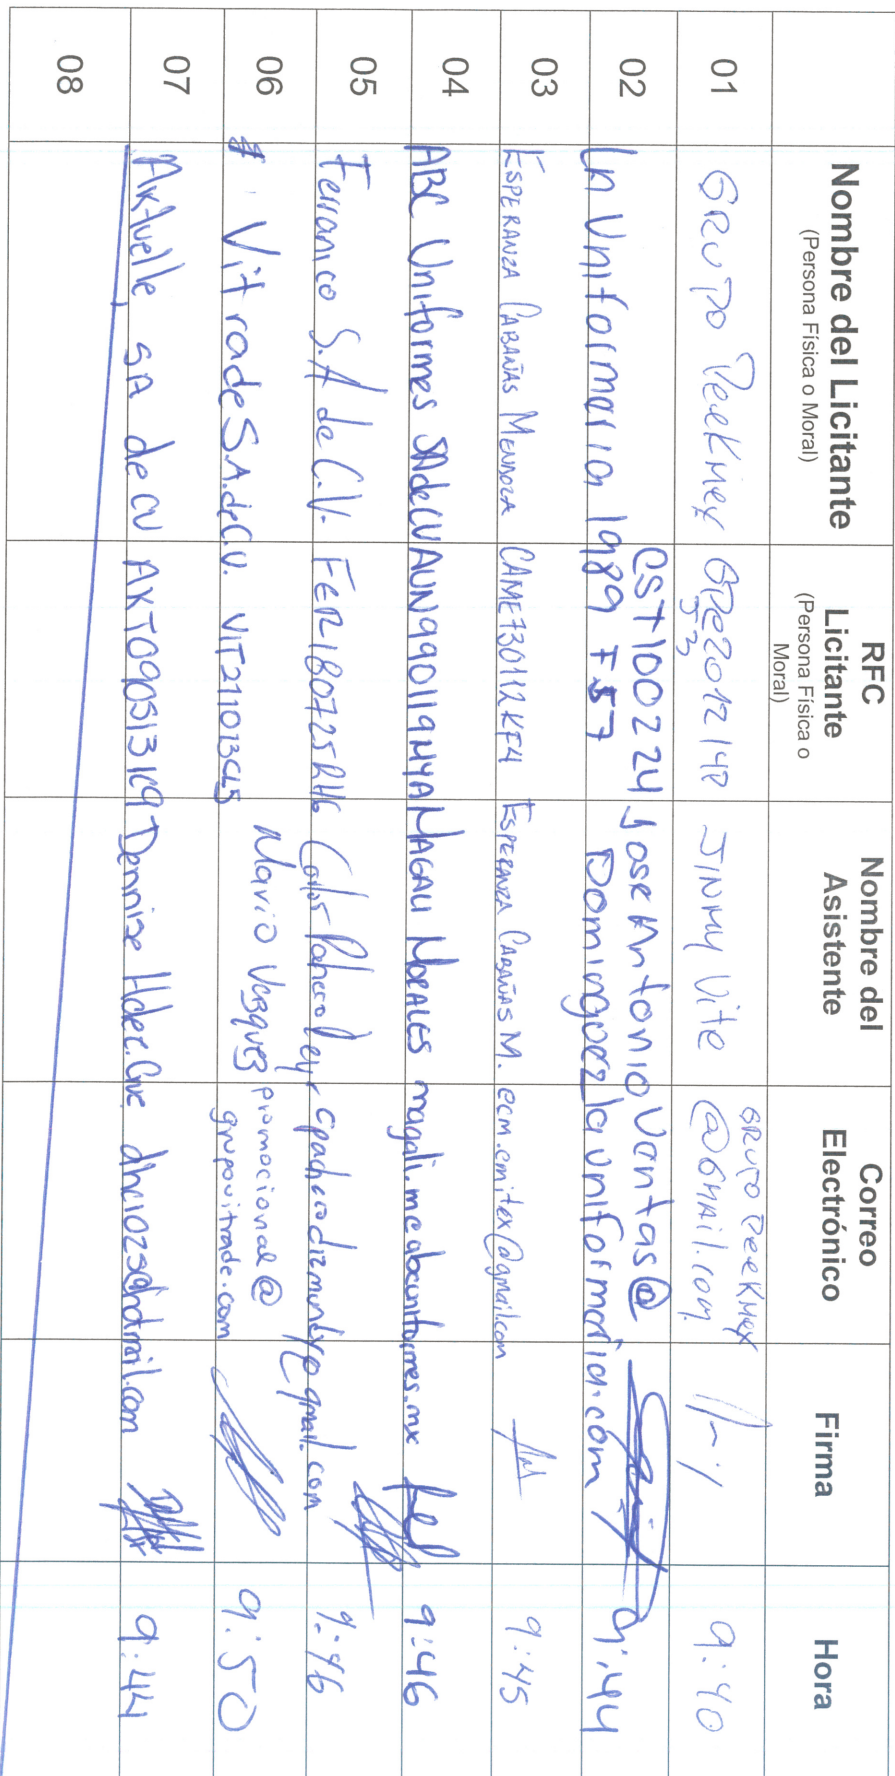 Nombre del Licitante
(Persona Física o Moral)
RFC
Licitante
(Persona Física o
Moral)
Nombre del
Asistente
Correo
Electrónico
Firma
Hora
01
GRUPO PeeKMex
GPE2012148
JJ3
JINMY Vite
GRUPO PeeKMex
@GMAIL.com
9:40
02
La Uniformaria 1989
CST100224
F57
Jose Antonio
Dominguez
Ventas@
launiformaria.com
9:44
03
ESPERANZA CABAÑAS MENDOZA
CAME730112KF4
ESPERANZA CABAÑAS M.
ecm.cmitex@gmail.com
9:45
04
ABC Uniformes SA de CV
AUN990119NYA
MAGALI MORALES
magali.mcabcuniformes.mx
9:46
05
Ferranico S.A de C.V.
FER180725RH6
9:46
06
Vitrade S.A. de C.V.
VIT211013GL5
Mario Vazquez
promocional@
grupovitrade.com
9:50
07
Aktuelle SA de CV
AKT0905131K9
Dennise
9:44
08